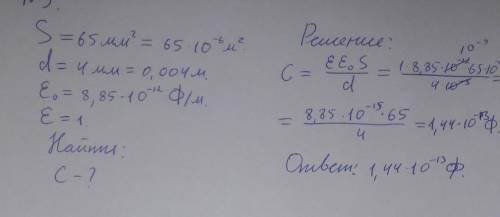 S = 65 мм² = 65·10⁻⁶ м².
d = 4 мм = 0,004 м.
ε₀ = 8,85·10⁻¹² Ф/м.
ε = 1.
Найти:
C - ?
Решение:
C = εε₀S / d = 1·8,85·10⁻¹²·65·10 / 4·10⁻³ =
= 8,85·10⁻¹⁵·65 / 4 = 1,44·10⁻¹³ Ф.
Ответ: 1,44·10⁻¹³ Ф.